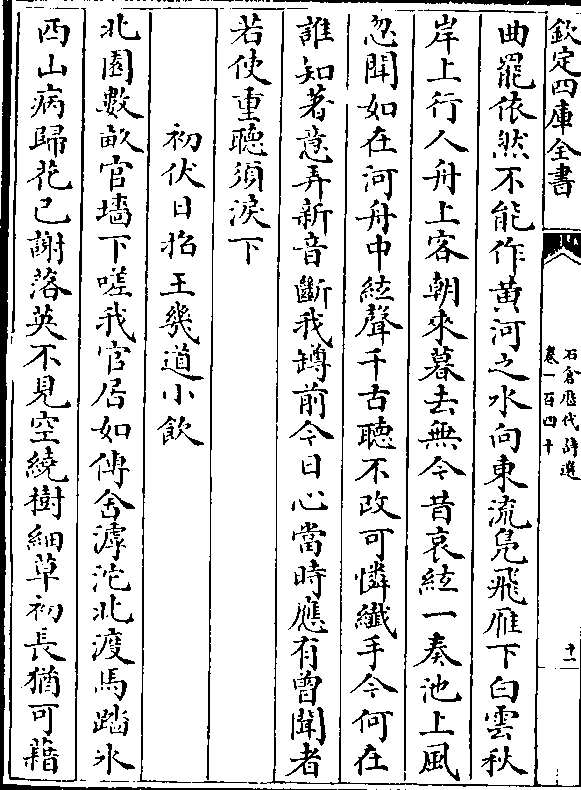 欽定四庫全書
石倉歷代詩選
卷一百四十
十一
曲罷依然不能作黄河之水向東流鳬飛雁下白雲秋
岸上行人舟上客朝來暮去無今昔哀絃一奏池上風
忽聞如在河舟中絃聲千古聽不改可憐纖手今何在
誰知著意弄新音斷我罇前今日心當時應有曾聞者
若使重聽須淚下
初伏日招王幾道小飲
北園數畝官墻下嗟我官居如傳舍滹沱北渡馬踏氷
西山病歸花已謝落英不見空繞樹細草初長猶可藉